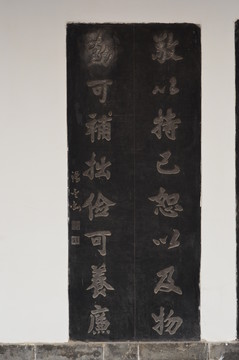 敬以持己恕以及物
勤可補拙儉可養廉